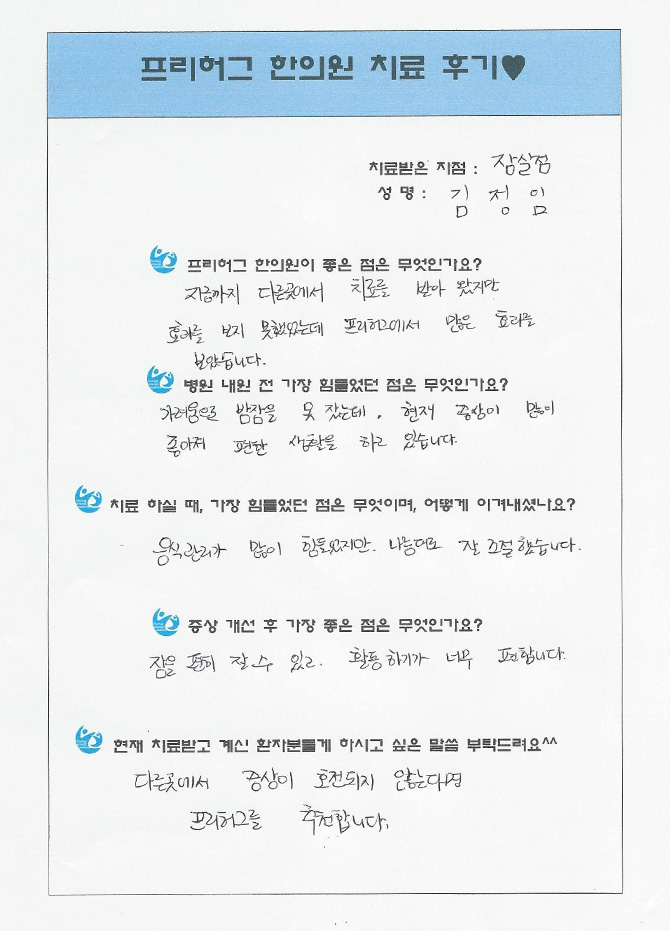 프리허그 한의원 치료 후기♥
치료받은 지점 : 잠실점
성 명 : 김 정 임
프리허그 한의원이 좋은 점은 무엇인가요?
지금까지 다른곳에서 치료를 받아 왔지만
효과를 보지 못했었는데 프리허그에서 많은 효과를
보았습니다.
병원 내원 전 가장 힘들었던 점은 무엇인가요?
가려움으로 밤잠을 못 잤는데, 현재 증상이 많이
좋아져 편한 생활을 하고 있습니다
치료 하실 때, 가장 힘들었던 점은 무엇이며, 어떻게 이겨내셨나요?
음식관리가 많이 힘들었지만. 나름대로 잘 조절했습니다.
증상 개선 후 가장 좋은 점은 무엇인가요?
잠을 편히 잘 수 있고. 활동하기가 너무 편합니다.
현재 치료받고 계신 환자분들게 하시고 싶은 말씀 부탁드려요^^
다른곳에서 증상이 호전되지 않는다면
프리허그를 추천합니다.